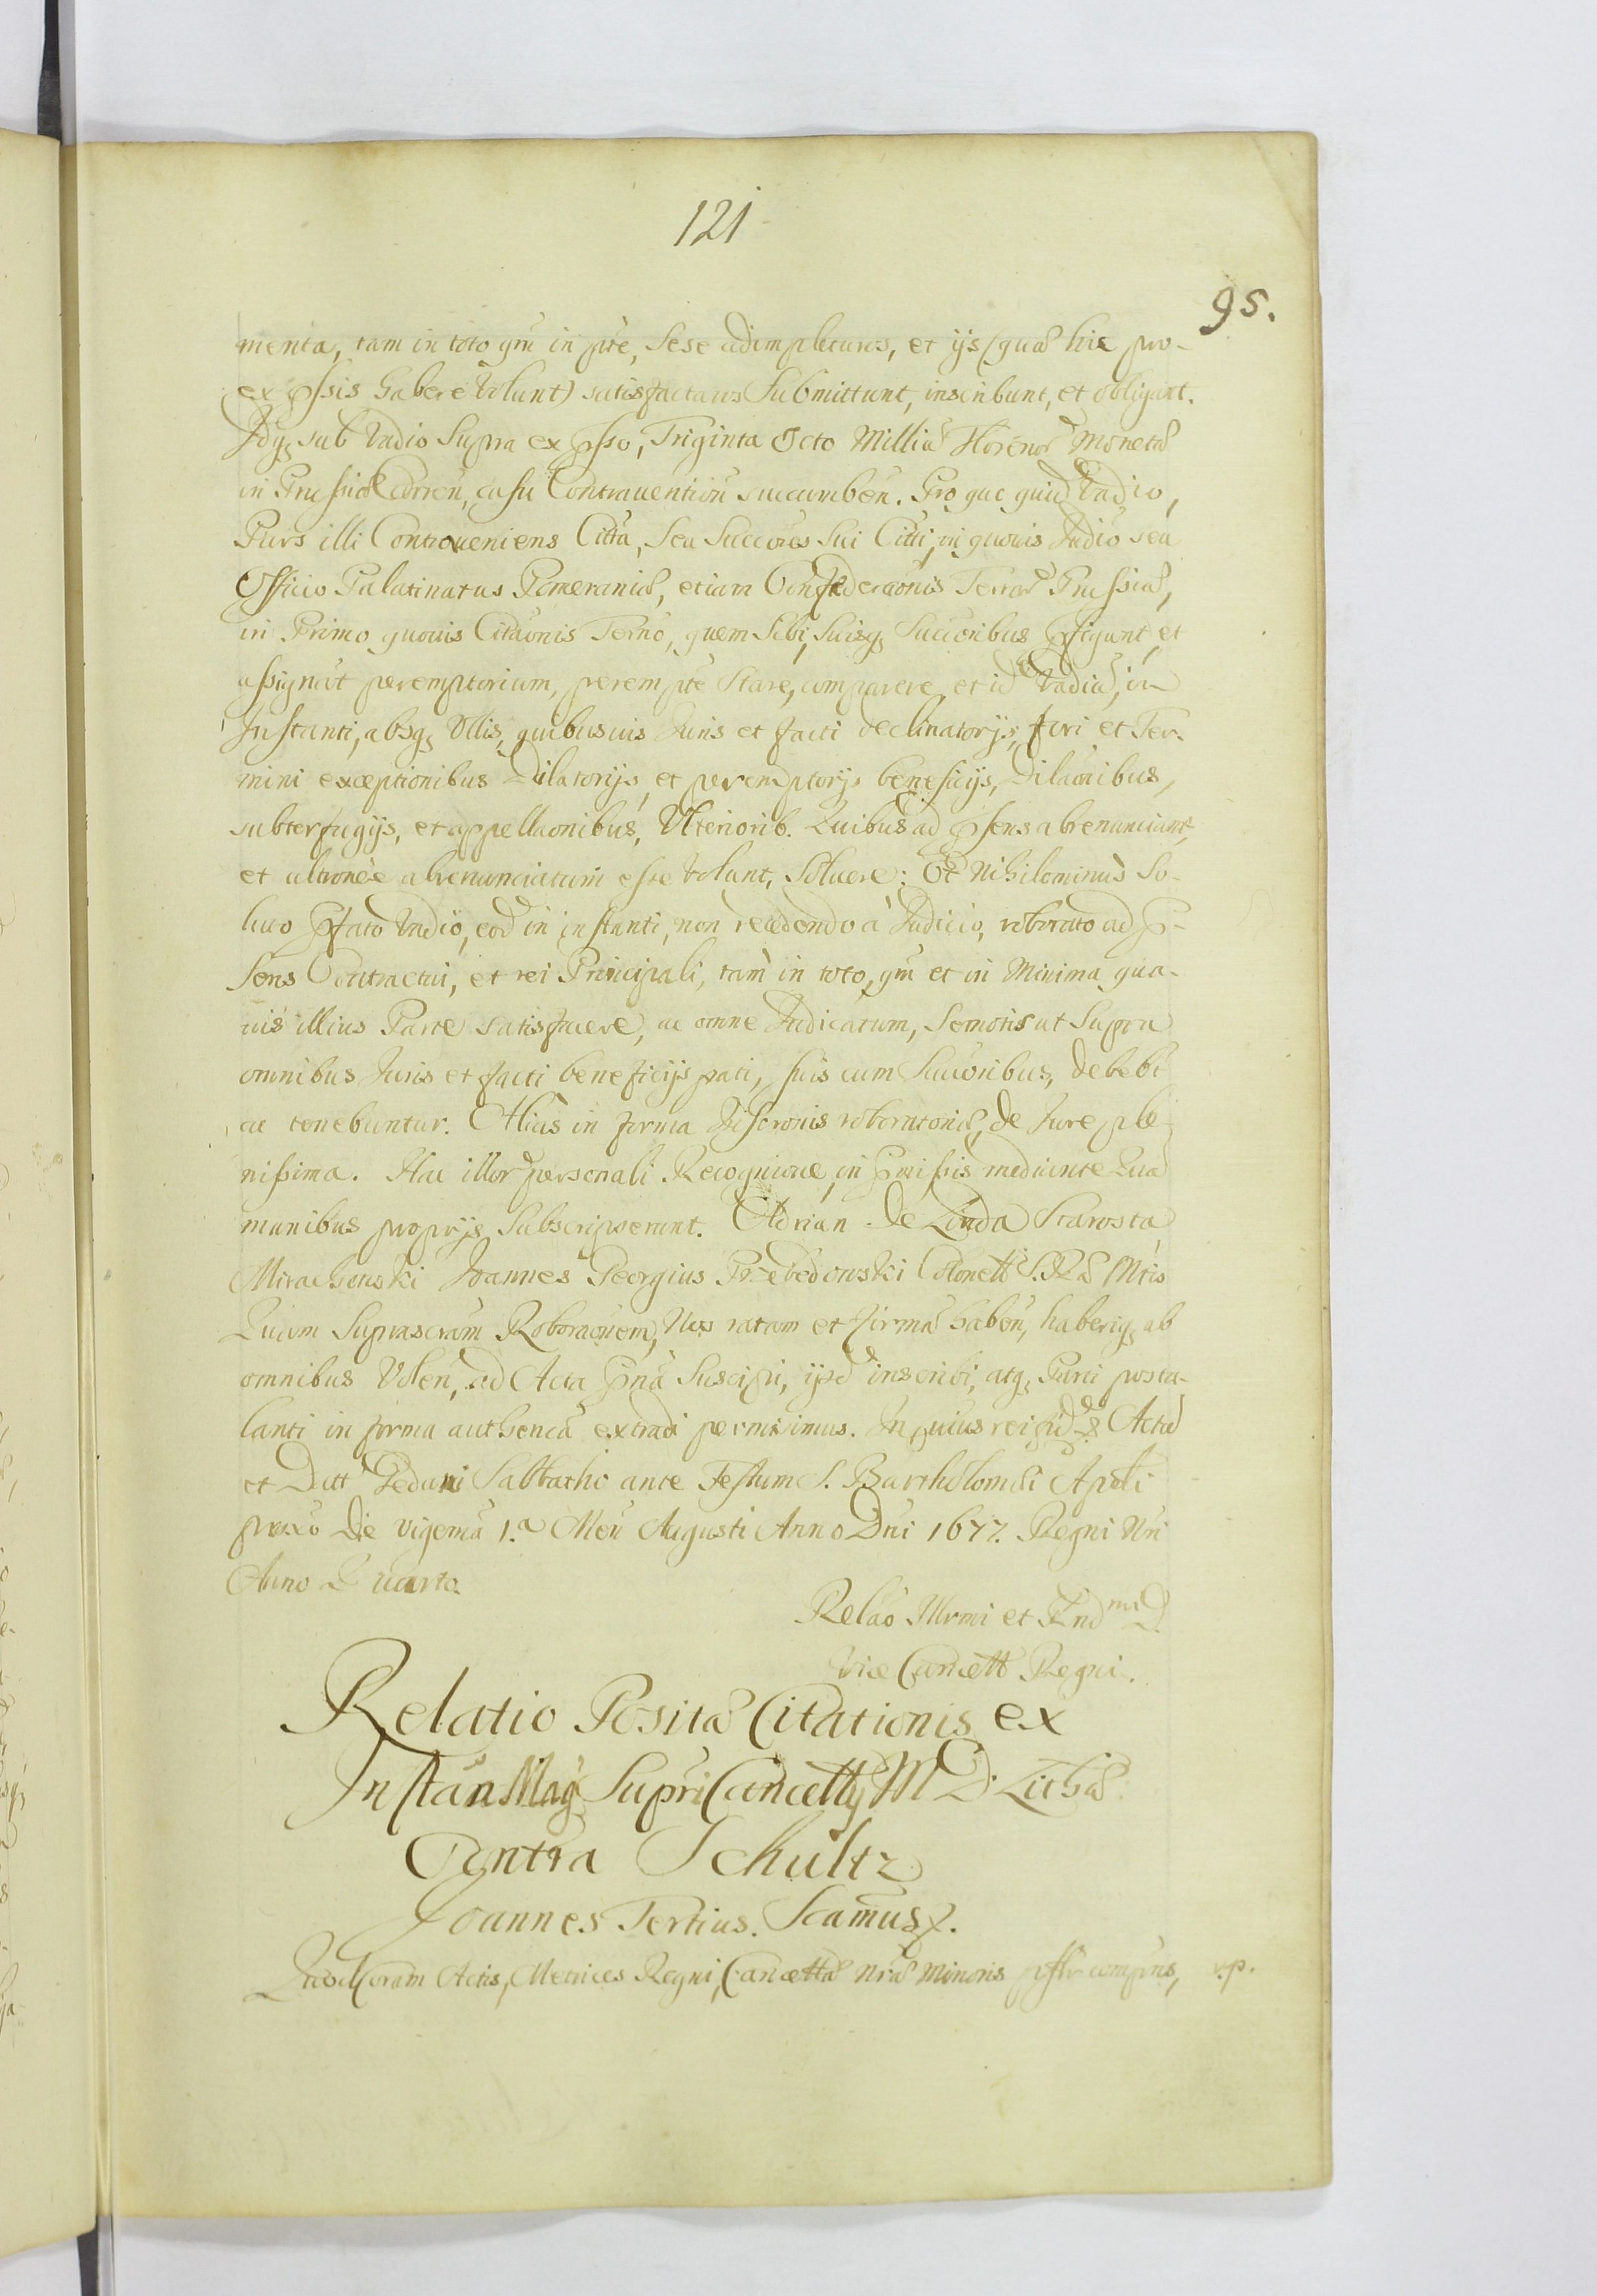 121
95.
menta, tam in toto qm̃ in pte, sese adimpleturos, et ijs (quæ hic pro-
expssis habere volunt) satisfacturos submittunt, inscribunt, et obligant.
Idq; sub vadio supra expsso, Triginta Octo Milliũ Florenoꝝ Monetæ
in Prussia Curreñ, casu Contrauentioñ succumbeñ. Pro quo quid vadio,
Pars illi Contraueniens Citta, seu Succores sui Citti, in quouis Iudio seu
Officio Palatinatus Pomeraniæ, etiam Confæderaonis Terraꝝ Prussiæ,
in Primo quouis Citaonis Terno, quem sibi, suisq; Succoribus pfigunt, et
assignãt peremptorium, perempte stare, comparere, et id vadiũ, in
Instanti, absq; Ullis, quibusuis Iuris et facti declinatorijs, fori et Ter-
mini exceptionibus Dilatorijs, et peremptorijs beneficijs, Dilaonibus,
subterfugijs, et appellaonibus, Ulteriorib. Quibus ad psens abrenunciant,
et ultronee abrenunciatum esse volunt, soluere: Et nihilominus so-
luto pfato vadio, eod in instanti, non recedendo à Iudicio, roborato ad p-
sens Contractui, et rei Principali, tam in toto, qm̃ et in Minima qua-
uis illius Parte satisfacere, ac omne Iudicatum, semotis ut supra
omnibus Iuris et facti beneficijs pati, suis cum Succoribus, debebt
ac tenebuntur. Alias in forma Inscronis roboratoriæ, de Iure ple-
nissima. Hac illoꝝ personali Recognitione, in pmissis mediante Quã
manibus proprijs subscripserunt. Adrian de Linda Starosta
Mirachouski Joannes Georgius Przebedowski Colonell S. R. Mtis
Quam suprascram Roboraonem, Nos ratam et firmã habeñ, haberiq; ab
omnibus Voleñ, ad Acta pñã suscipi, ijsd inscribi, atq; Parti postu-
lanti in forma authencã extradi permisimus. In cuius rei fid & Actũ
et Datt Gedani Sabbatho ante Festum S. Bartholomæi Apoli
proxo Die vigemã 1.ª Meñ Augusti Anno Dni 1677. Regni Nri
Anno Quarto.
Relão Illrmi et Rnd mi D.
vice Cancell Regni.
Relatio Positæ Citationis ex
Instañ Mag Supri Cancellrj M D. Lithæ
Contra Schultz
Joannes Tertius. Scamus &.
Quod coram Actis, Metrices Regni, Cancellæ nræ Minoris psslr comprns, v.p.